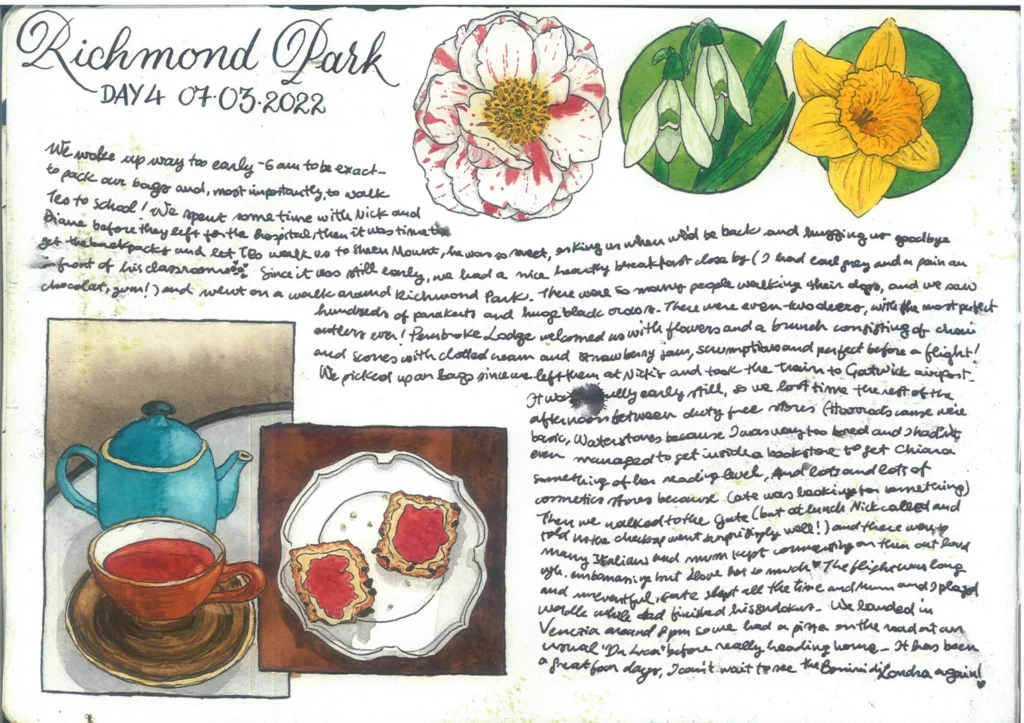 Richmond Park
DAY 4 07.03.2022
We woke up way too early - 6 am to be exact -
to pack our bags and, most importantly, to walk
Teo to school! We spent some time with Nick and
Diane before they left for the hospital, then it was time to
get the backpacks and let Teo walk us to Sheen Mount, he was so sweet, asking us when we'd be back and hugging us goodbye
in front of his classroom. Since it was still early, we had a nice hearty breakfast close by (I had earl grey and a pain au
chocolat, yum!) and went on a walk around Richmond Park. There were so many people walking their dogs, and we saw
hundreds of parakeets and huge black crows. There were even two deers, with the most perfect
antlers ever! Pembroke Lodge welcomed us with flowers and a brunch consisting of chai
and scones with clotted cream and strawberry jam, scrumptious and perfect before a flight!
We picked up our bags since we left them at Nick's and took the train to Gatwick airport -
It was still, so we lost time the rest of the
afternoon between duty free stores (Harrods cause we're
basic, Waterstones because I was way too bored and I hadn't
even managed to get inside a bookstore to get Chiara
something of her reading level, and lots and lots of
cosmetics stores because Cate was looking for something)
Then we walked to the Gate (but at lunch Nick called and
told us the checkup went surprisingly well!) and there were so
many Italians and mum kept commenting on them out loud
ugh. embarrassing but I love her so much ♥ The flight was long
and uneventful, Cate slept all the time and Mum and I played
wordle while dad finished his sudokus - We landed in
Venezia around 8 pm so we had a pizza on the road at our
usual "Da Luca" before really heading home - It has been
a great four days, I can't wait to see the Bonini di Londra again!♥